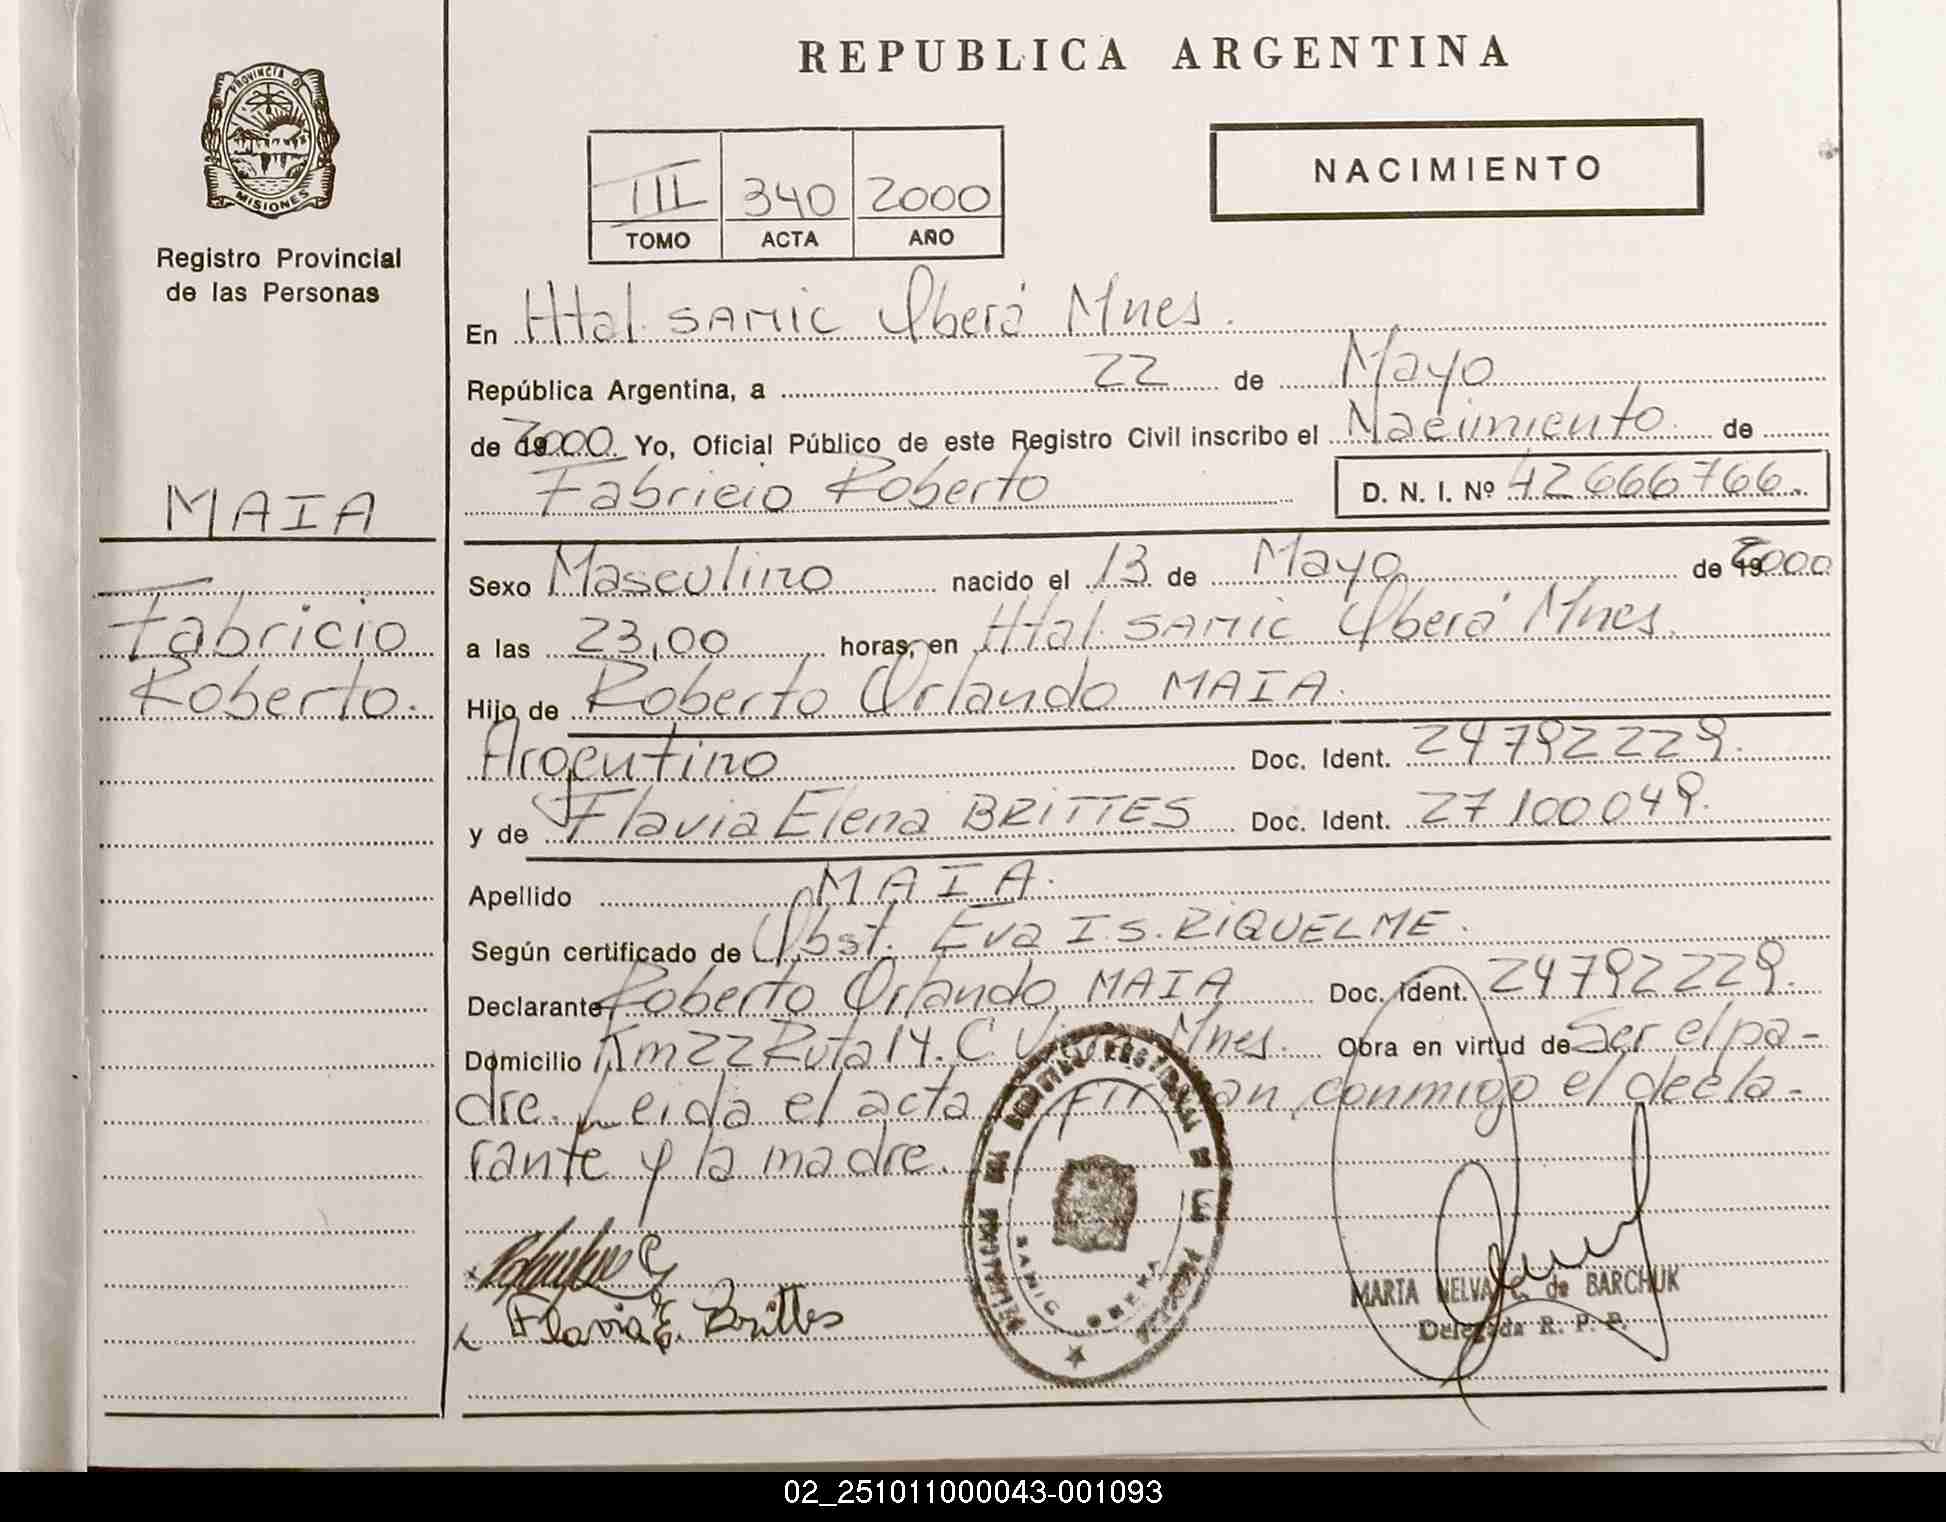 REPUBLICA ARGENTINA
PROVINCIA D
MISIONES
Registro Provincial
de las Personas
III 340 2000
TOMO ACTA AÑO
NACIMIENTO
En Htal. SAMIC Oberá Mnes.
República Argentina, a 22 de Mayo
de 2000. Yo, Oficial Público de este Registro Civil inscribo el Nacimiento de
Fabricio Roberto D. N. I. Nº 42666766.
MAIA
Fabricio
Roberto.
Sexo Masculino nacido el 13 de Mayo de 2000
a las 23,00 horas, en Htal. SAMIC Oberá Mnes.
Hijo de Roberto Orlando MAIA.
Argentino Doc. Ident. 24792229.
y de Flavia Elena BRITTES Doc. Ident. 27100049.
Apellido MAIA.
Según certificado de Obst. Eva I.S. RIQUELME.
Declarante Roberto Orlando MAIA Doc. Ident. 24792229.
Domicilio Km 22 Ruta 14. C. Mnes. Obra en virtud de Ser el pa-
dre. Leida el acta conmigo el decla-
rante y la madre.
Flavia E. Brittes
SAMIC OBERA
MARTA NELVA de BARCHUK
Delegada R. P. P.
02_251011000043-001093